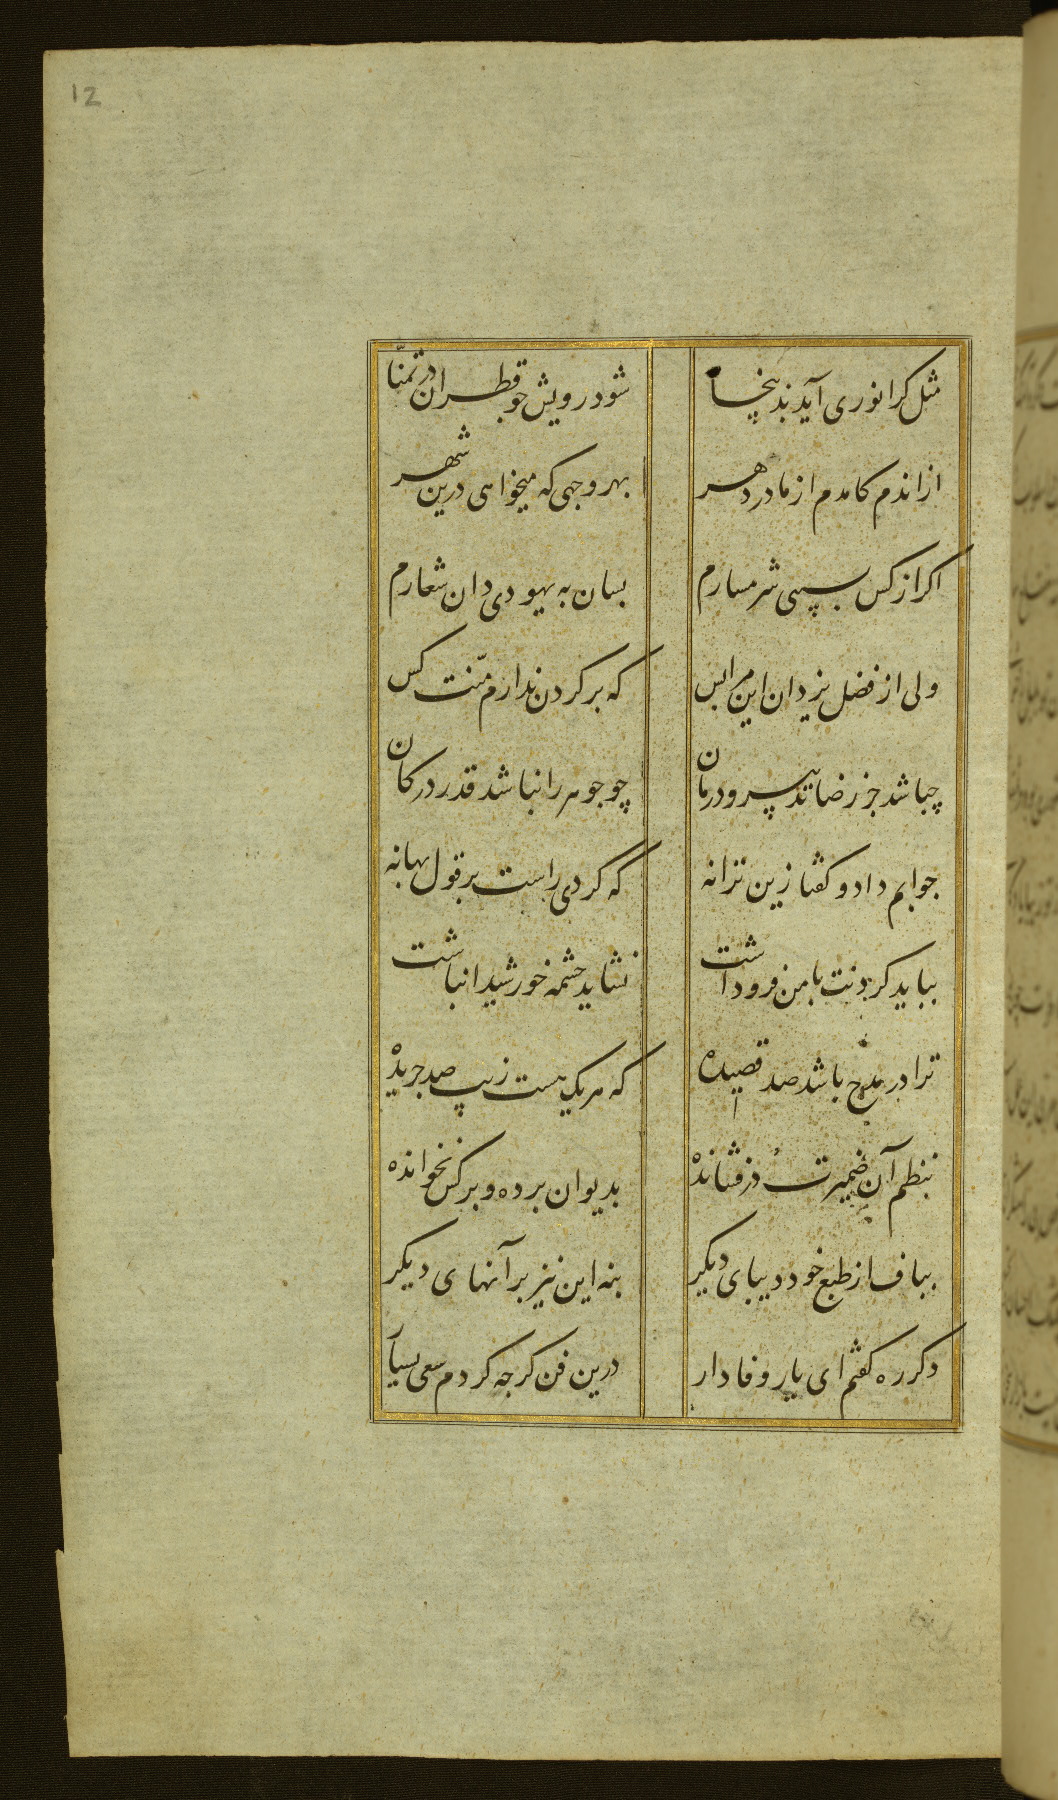 12
مثل کر انوری آید بدینجا
شود رویش چو قطران در تمنّا
از اندم کامدم از مادر دهر
بهر وجهی که میخواهی درین شهر
اکر از کس بسی شرمسارم
بسان به یهودی دان شعارم
ولی از فضل یزدان این مرا بس
که بر کردن ندارم منّت کس
چباشد جز رضا تدپیر و درمان
چو جوهر را نباشد قدر در کان
جوابم داد و کفتا زین ترانه
که کردی راست بر قول بهانه
بباید کردنت با من فرو داشت
نشاید چشمه خورشید انباشت
ترا در مدح باشد صد قصیده
که هر یک هست زیب صد جریده
بنظم آن ضمیرت در فشانده
بدیوان برده و بر کس نخوانده
بباف از طبع خود دیبای دیکر
بنه این نیز بر آنهای دیکر
دکر ره کفتم ای یار وفادار
درین فن کرچه کردم سعی بسیار